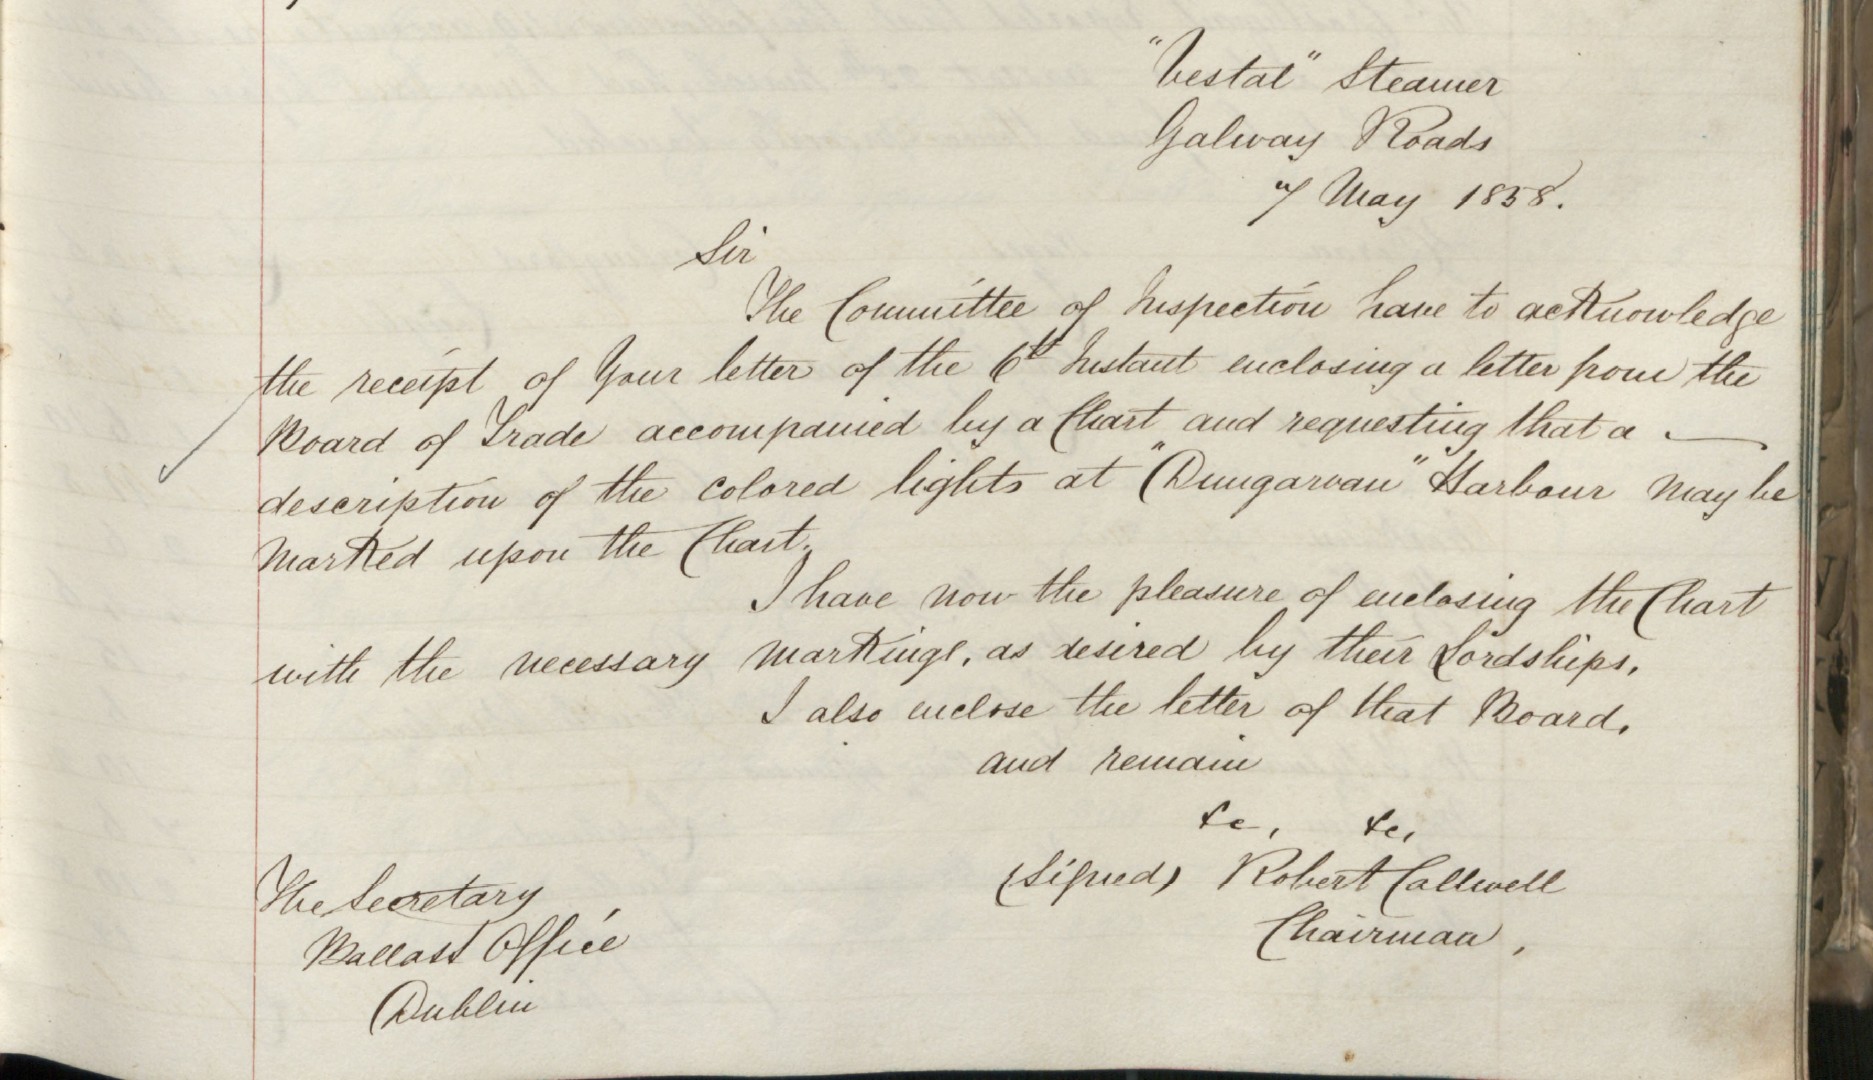 "Vestal" Steamer
Galway Roads
7 May 1858.
Sir
The Committee of Inspection have to acknowledge
the receipt of Your letter of the 6th Instant enclosing a letter from the
Board of Trade accompanied by a Chart and requesting that a
description of the colored lights at "Dungarvan" Harbour may be
marked upon the Chart.
I have now the pleasure of enclosing the Chart
with the necessary markings, as desired by their Lordships.
I also enclose the letter of that Board,
and remain
&c, &c,
(signed) Robert Callwell
Chairman,
The Secretary
Ballast Office
Dublin